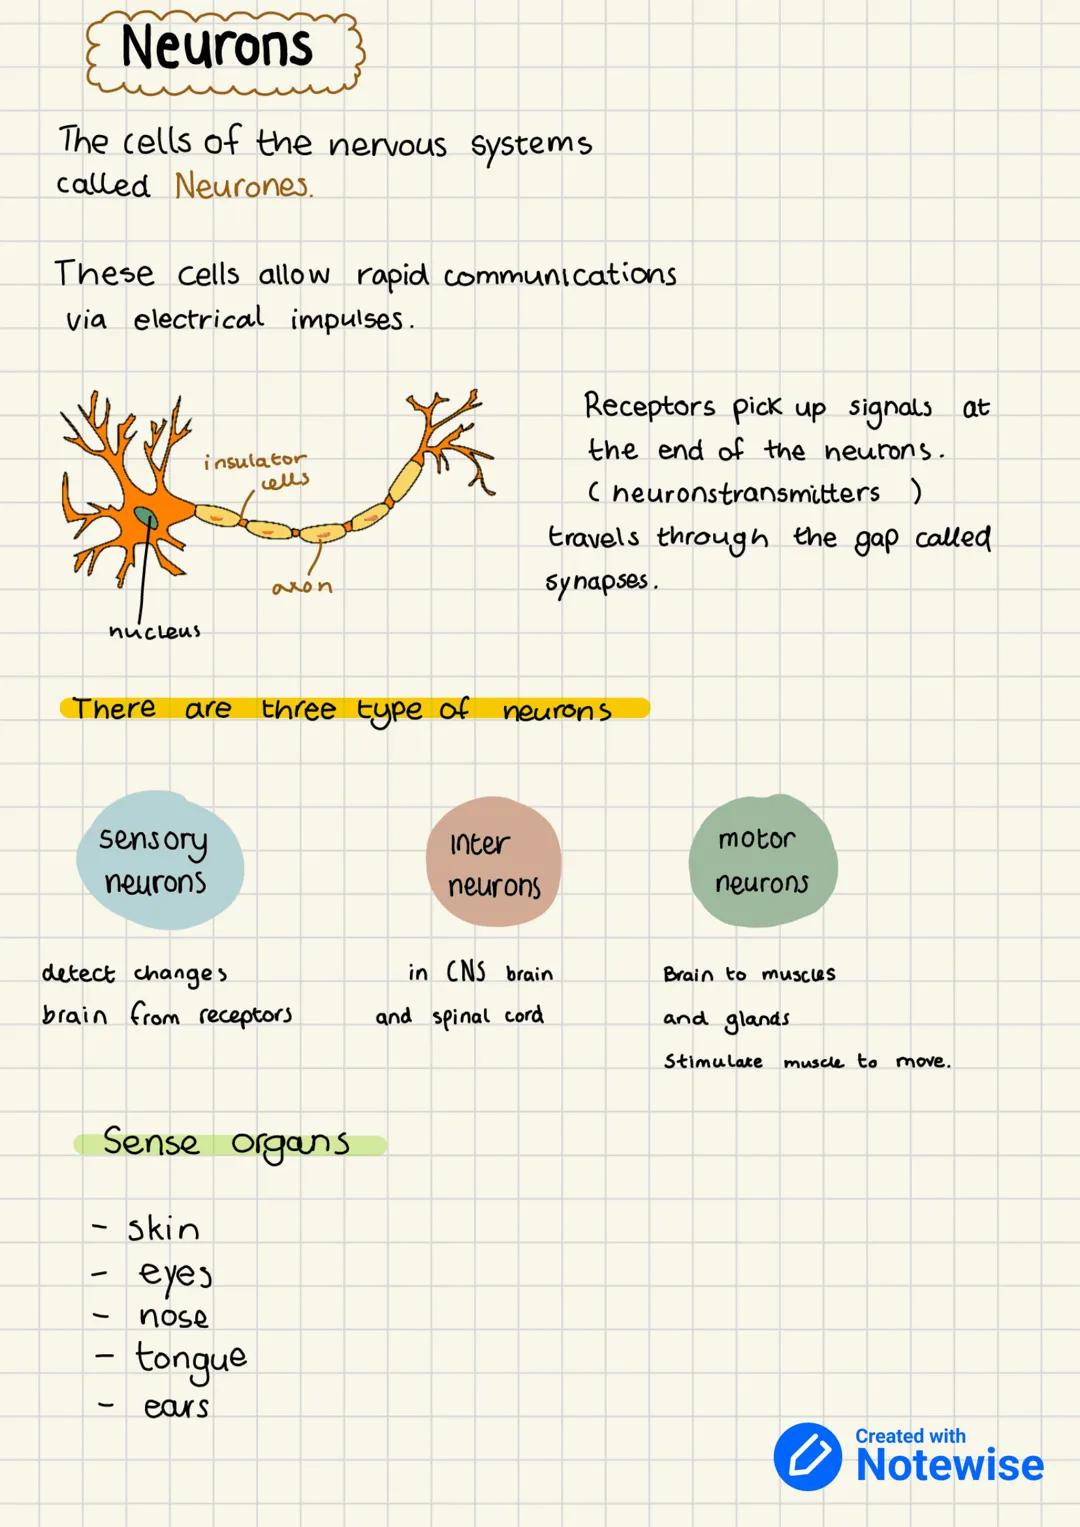 Neurons
The cells of the nervous systems
called Neurones.
These cells allow rapid communications
via electrical impulses.
insulator
cells
axon
nucleus
Receptors pick up signals at
the end of the neurons.
( neuronstransmitters )
travels through the gap called
synapses.
There are three type of neurons
sensory
neurons
Inter
neurons
motor
neurons
detect changes
brain from receptors
in CNS brain
and spinal cord
Brain to muscles
and glands
Stimulate muscle to move.
Sense organs
- skin
- eyes
- nose
- tongue
- ears
Created with
Notewise